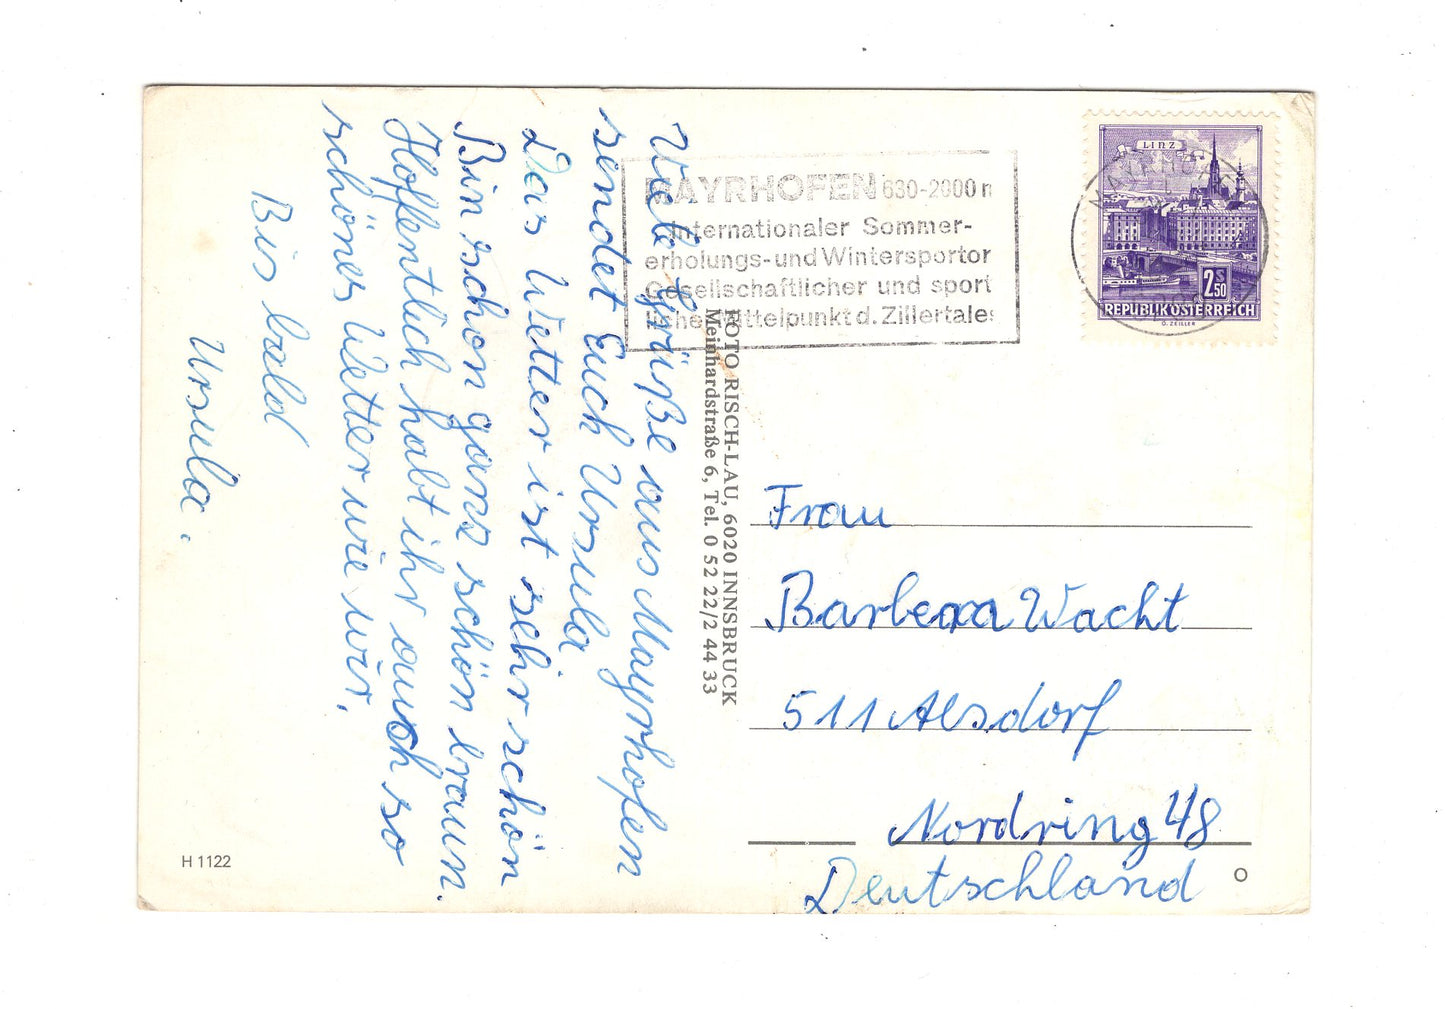 Viele Grüße aus Mayrhofen
sendet Euch Ursula
Das Wetter ist sehr schön
Bin schon ganz schön braun.
Hoffentlich habt ihr auch so
schönes Wetter wie wir.
Bis bald
Ursula.
H 1122
FOTO RISCH-LAU, 6020 INNSBRUCK
Meinhardstraße 6, Tel. 0 52 22/2 44 33
MAYRHOFEN 630-2000 m
Internationaler Sommer-
erholungs-und Wintersportor
Gesellschaftlicher und sport
licher Mittelpunkt d. Zillertales
LINZ
2.50
S
REPUBLIK ÖSTERREICH
O. ZEILLER
MAYRHOFEN
Frau
Barbara Wacht
511 Alsdorf
Nordring 48
Deutschland
O